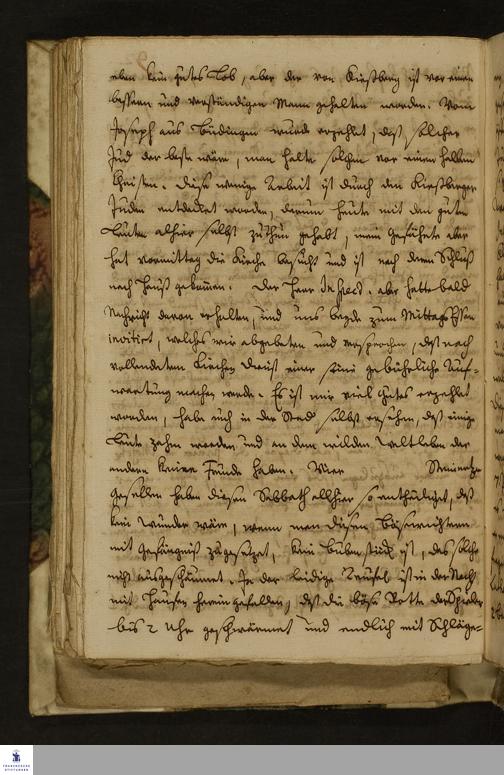 eben kein gutes Lob, aber der von Kirchberg ist vor einen
bessern und verständigen Mann gehalten worden. Vom
Joseph aus Büdingen wurde erzehlet, daß solcher
Jud der beste wäre, man halte solchen vor einen halben
Christen. Diese wenige Arbeit ist durch den Kirchberger
Juden entdecket worden, darum heute mit den guten
Leuten alhier selbst zuthun gehabt, mein Gefährte aber
hat vormittag die Kirche besucht und ist nach deren Schluß
nach Hauß gekommen. Der Herr Inspect. aber hatte bald
Nachricht davon erhalten, und uns beyde zum Mittags Essen
invitirt, welches wir abgebeten und versprochen, daß nach
vollendetem Kirchen Dienst einer seine gebührliche Auf=
wartung machen werde. Es ist mir viel Gutes erzehlet
worden, habe auch in der Stadt selbst ersehen, daß einige
Leute zahm werden und an dem wilden Weltleben der
andern keine Freude haben. Vier
Gesellen haben diesen Sabbath allhier so entheiliget, daß
kein Wunder wäre, wenn man diesen Bösewichtern
mit Gefängniß zugesetzet, kein Bubenstück ist, das solche
nicht ausgeschäumet. Ja der leidige Teufel ist in der Nacht
mit Haufen herein gefallen, daß die böse Rotte der Spieler
bis 2 Uhr geschwärmet und endlich mit Schläge=
FRANCKESCHE
STIFTUNGEN